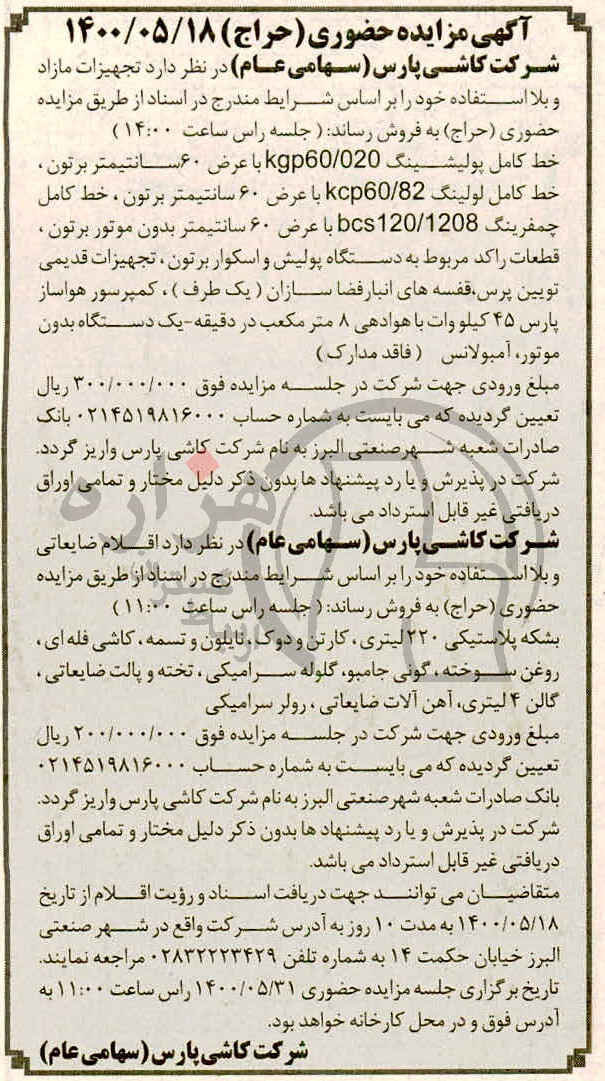 آگهی مزایده حضوری (حراج) ۱۴۰۰/۰۵/۱۸
شرکت کاشی پارس (سهامی عام) در نظر دارد تجهیزات مازاد
و بلا استفاده خود را بر اساس شرایط مندرج در اسناد از طریق مزایده
حضوری (حراج) به فروش رساند: ( جلسه راس ساعت ۱۴:۰۰ )
خط کامل پولیشینگ kgp60/020 با عرض ۶۰ سانتیمتر برتون ،
خط کامل لولینگ kcp60/82 با عرض ۶۰ سانتیمتر برتون ، خط کامل
چمفرینگ bcs120/1208 با عرض ۶۰ سانتیمتر بدون موتور برتون ،
قطعات راکد مربوط به دستگاه پولیش و اسکوار برتون ، تجهیزات قدیمی
تویین پرس،قفسه های انبارفضا سازان ( یک طرف ) ، کمپرسور هواساز
پارس ۴۵ کیلو وات با هوادهی ۸ متر مکعب در دقیقه-یک دستگاه بدون
موتور، آمبولانس ( فاقد مدارک )
مبلغ ورودی جهت شرکت در جلسه مزایده فوق ۳۰۰/۰۰۰/۰۰۰ ریال
تعیین گردیده که می بایست به شماره حساب ۰۲۱۴۵۱۹۸۱۶۰۰۰ بانک
صادرات شعبه شهرصنعتی البرز به نام شرکت کاشی پارس واریز گردد.
شرکت در پذیرش و یا رد پیشنهاد ها بدون ذکر دلیل مختار و تمامی اوراق
دریافتی غیر قابل استرداد می باشد.
شرکت کاشی پارس (سهامی عام) در نظر دارد اقلام ضایعاتی
و بلا استفاده خود را بر اساس شرایط مندرج در اسناد از طریق مزایده
حضوری (حراج) به فروش رساند: ( جلسه راس ساعت ۱۱:۰۰ )
بشکه پلاستیکی ۲۲۰ لیتری ، کارتن و دوک ، نایلون و تسمه ، کاشی فله ای ،
روغن سوخته ، گونی جامبو، گلوله سرامیکی ، تخته و پالت ضایعاتی ،
گالن ۴ لیتری، آهن آلات ضایعاتی ، رولر سرامیکی
مبلغ ورودی جهت شرکت در جلسه مزایده فوق ۲۰۰/۰۰۰/۰۰۰ ریال
تعیین گردیده که می بایست به شماره حساب ۰۲۱۴۵۱۹۸۱۶۰۰۰
بانک صادرات شعبه شهرصنعتی البرز به نام شرکت کاشی پارس واریز گردد.
شرکت در پذیرش و یا رد پیشنهاد ها بدون ذکر دلیل مختار و تمامی اوراق
دریافتی غیر قابل استرداد می باشد.
متقاضیان می توانند جهت دریافت اسناد و رؤیت اقلام از تاریخ
۱۴۰۰/۰۵/۱۸ به مدت ۱۰ روز به آدرس شرکت واقع در شهر صنعتی
البرز خیابان حکمت ۱۴ به شماره تلفن ۰۲۸۳۲۲۲۳۴۲۹ مراجعه نمایند.
تاریخ برگزاری جلسه مزایده حضوری ۱۴۰۰/۰۵/۳۱ راس ساعت ۱۱:۰۰ به
آدرس فوق و در محل کارخانه خواهد بود.
شرکت کاشی پارس (سهامی عام)
هزاره